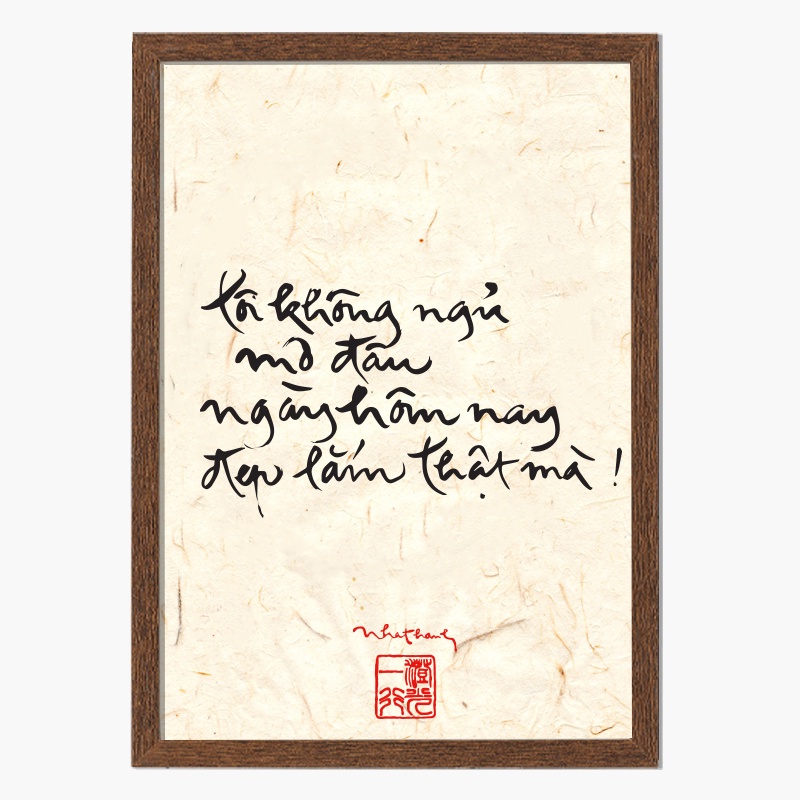 tôi không ngủ
mơ đâu
ngày hôm nay
đẹp lắm thật mà !
nhathanh
澄光
一行